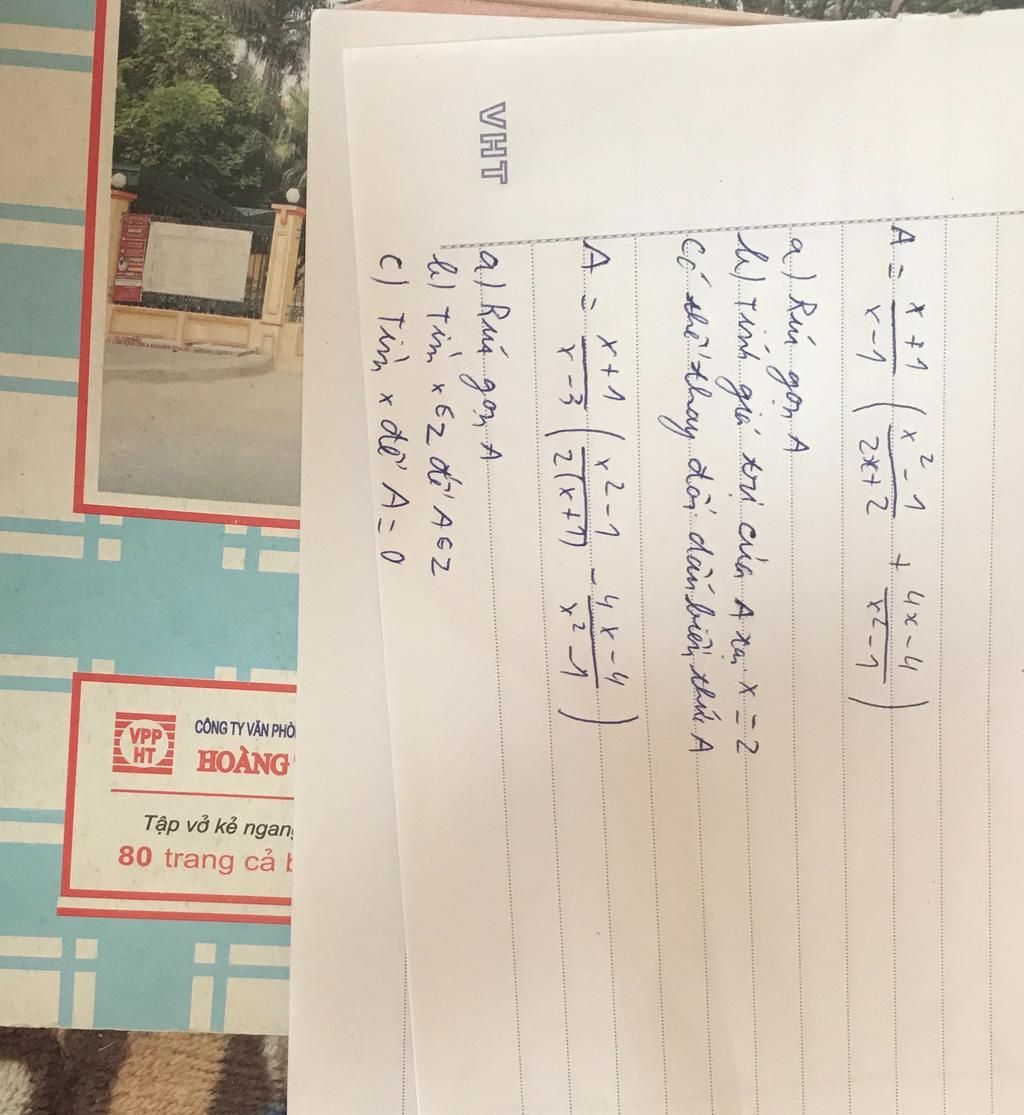 VHT
A = \frac{x+1}{x-1} ( \frac{x^2-1}{2x+2} + \frac{4x-4}{x^2-1} )
a) Rút gọn A
b) Tính giá trị của A tại x = 2
Có thể thay đổi dấu biểu thức A
A = \frac{x+1}{x-3} ( \frac{x^2-1}{2(x+1)} - \frac{4x-4}{x^2-1} )
a) Rút gọn A
b) Tìm x ∈ Z để A ∈ Z
c) Tìm x để A = 0
VPP
HT
CÔNG TY VĂN PHÒ
HOÀNG
Tập vở kẻ ngang
80 trang cả b